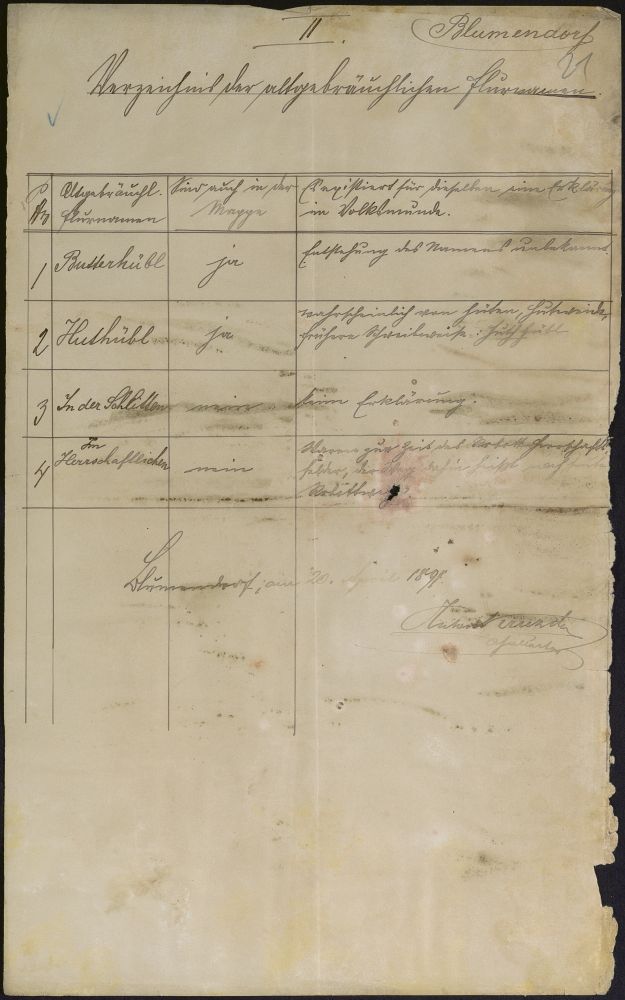 11.
Blumendorf
21
Verzeichnis der altgebräuchlichen Flurnamen.
No Altgebräuchl. Flurnamen
Sind auch in der Mappe
Existiert für dieselben eine Erklärung
in Volksmunde.
1 Butterhübl ja Entstehung des Namens unbekannt
2 Huthübl ja wahrscheinlich von hüten, Hutweide,
frühere Schreibweise: Huthhübl
3 In der Schlitten nein keine Erklärung.
4 Im Herrschaftlichen nein Waren zur Zeit des
Felder, der Weg
Blumendorf, am 20. April 1897
Anton